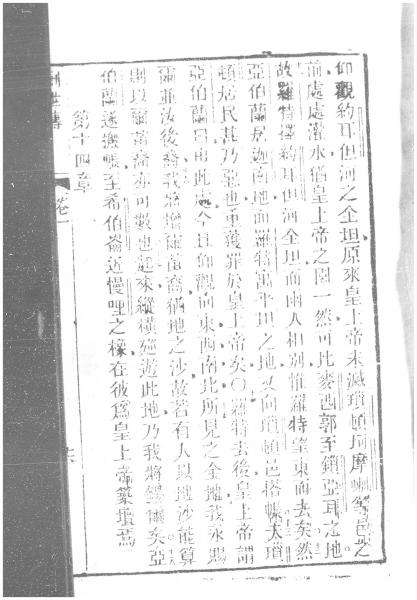 仰觀約耳但河之全坦原來皇上帝未滅瑣頓坷摩喇等邑之
前處處灌水猶皇上帝之園一然可比麥西郭至鎖亞耳之地
故羅特擇約耳但河全坦而兩人相別惟羅特望東而去矣然
亞伯蘭居迦南地而羅特寓平坦之地又向瑣頓邑搭帳夫瑣
頓居民甚乃惡也重獲罪於皇上帝矣○羅特去後皇上帝謂
亞伯蘭曰由此處今且仰觀向東西南北所見之全地我永賜
爾並汝後裔我將增爾苗裔猶地之沙故若有人以地沙能算
則以爾苗裔亦可數也起來縱橫廵遊此地乃我將錫爾矣亞
伯蘭遂搬帳至希伯崙近慢哩之橡在彼爲皇上帝築壇焉
第十四章
創世傳
卷一